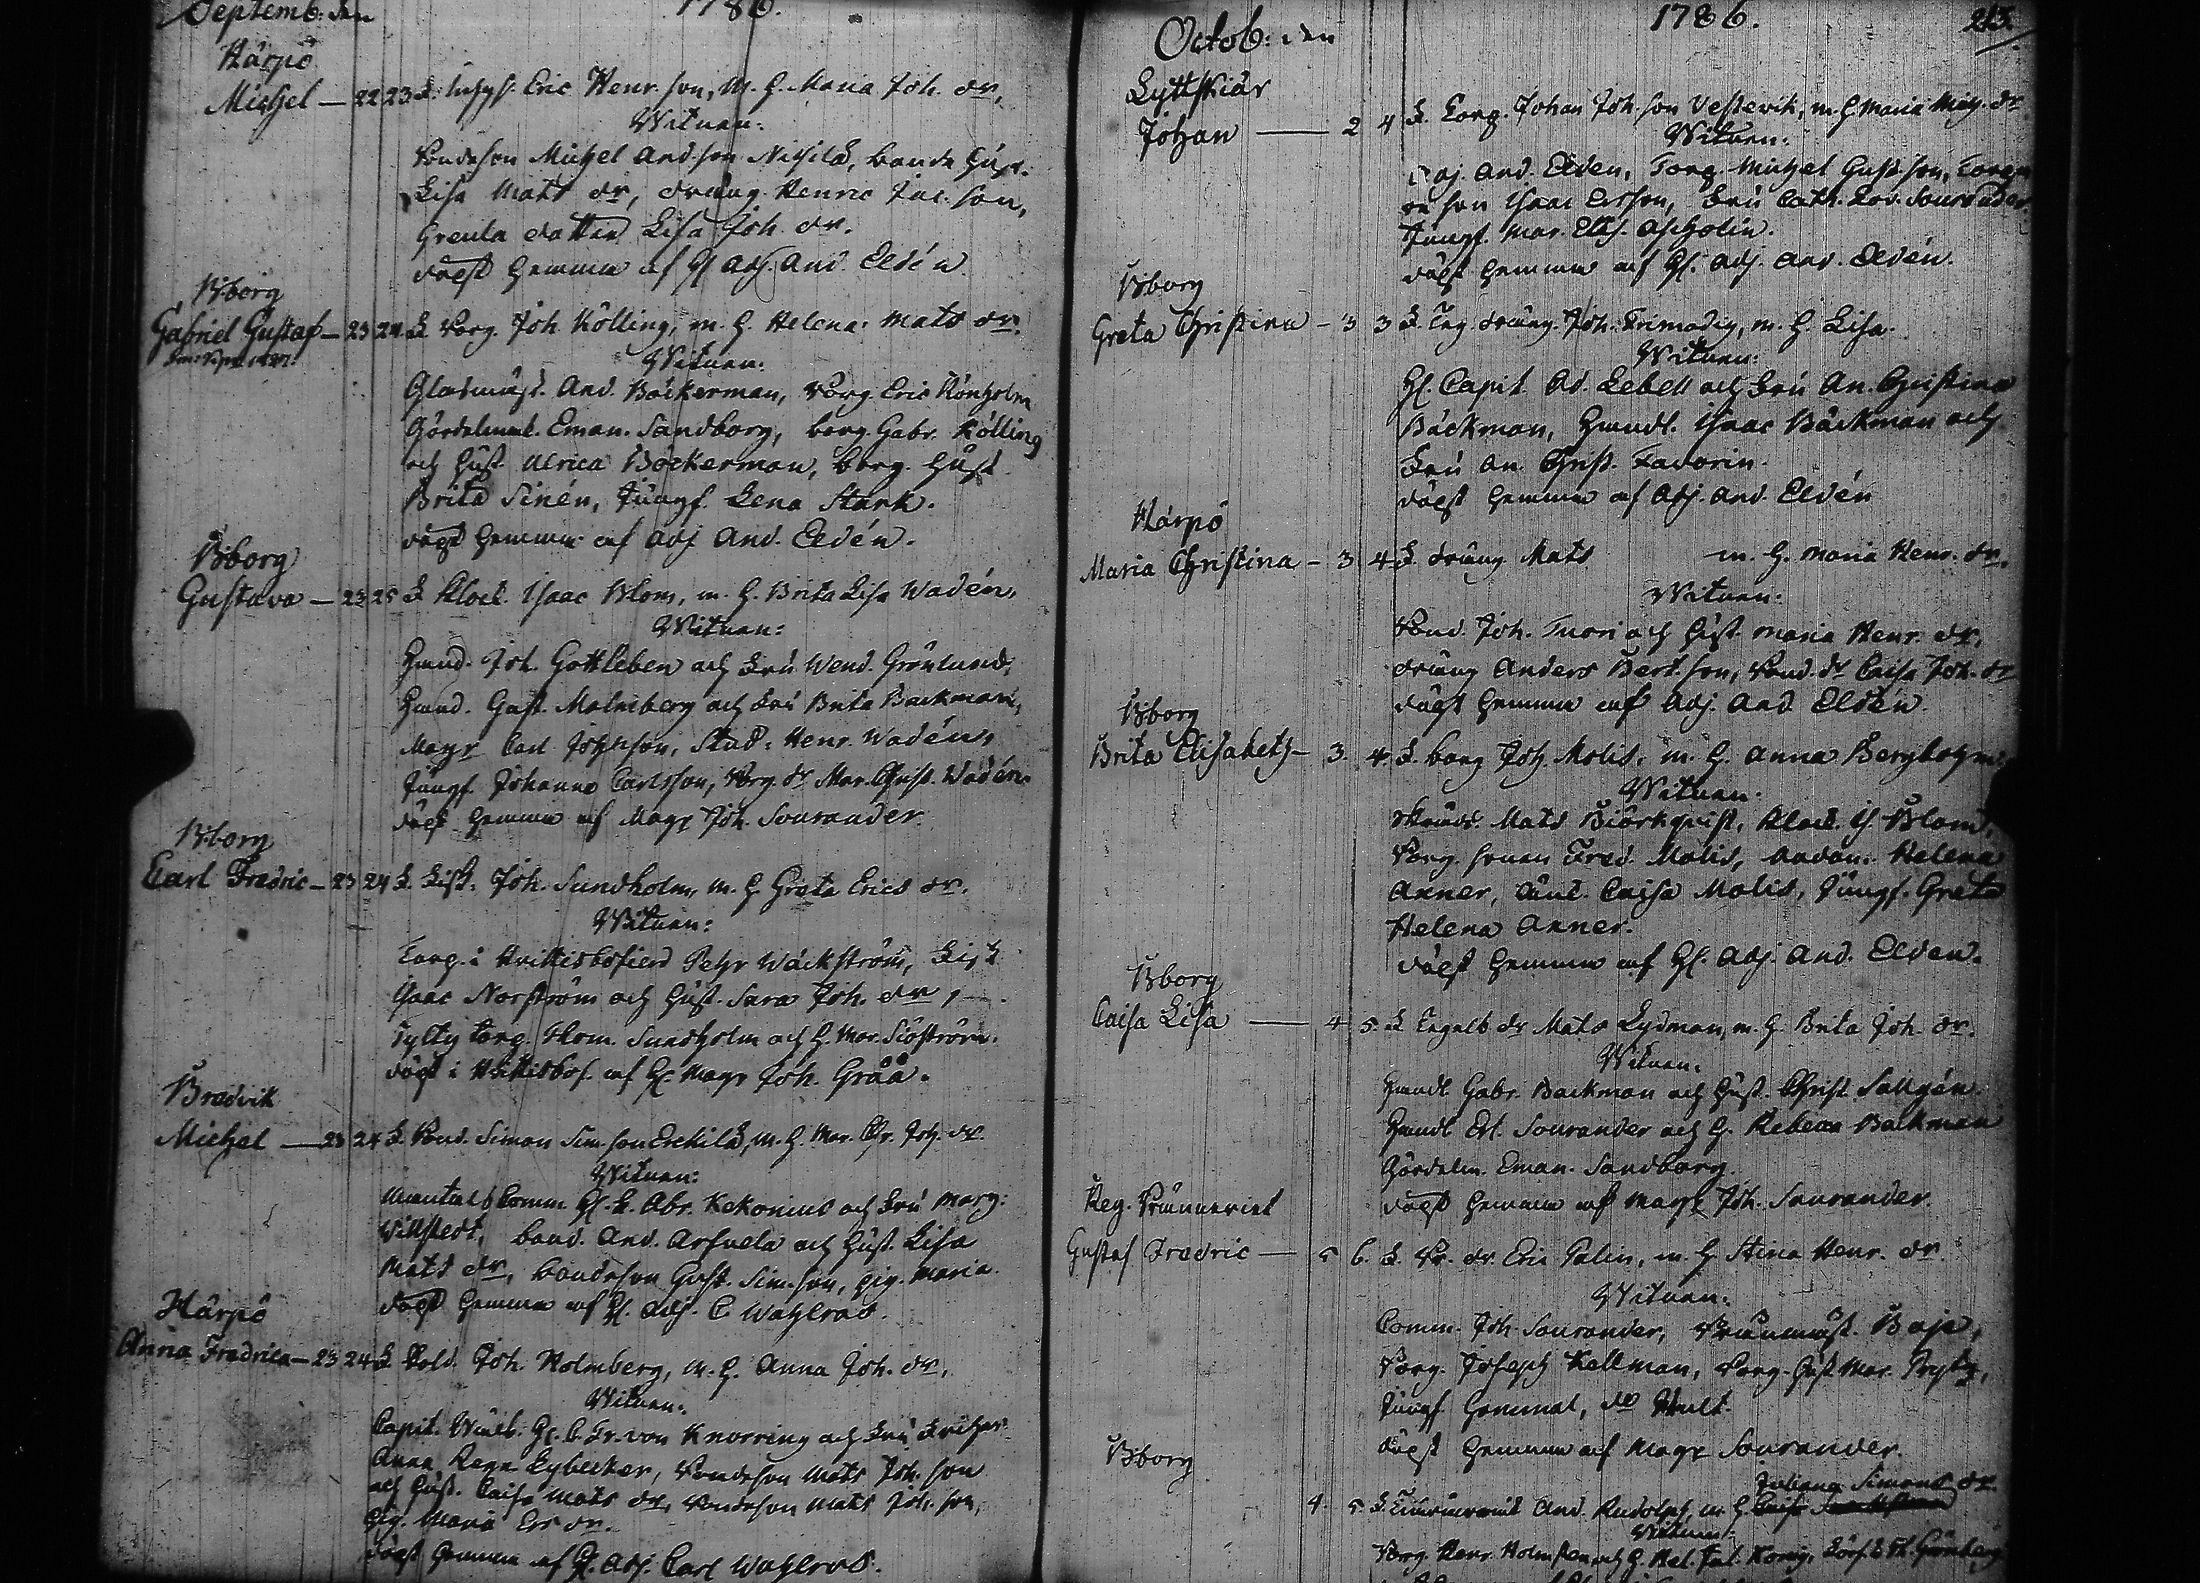 Septemb: den 1786.
Härpö
Michel — 22 23 F. Eric Henr. son, m. H. Maria Joh. dr,
Witnen:
Bondeson Michel And. son Nissilä, bonde Hust.
Lisa Mats dr, dräng Henric Jac. son,
Grenla dotter Lisa Joh. dr.
döpt hemma af H. Adj. And. Eldén
Bborg
Gabriel Gustaf — 23 24 F. Borg. Joh. Kölling, m. H. Helena Mats dr.
Witnen:
Glasmäst. And. Bäckerman, Borg. Eric Rönholm
Gördelmak. Eman. Sandborg, borg. Gabr. Kölling
och Hust. Ulrica Bäckerman, borg. Hust.
Brita Sinén, Jungf. Lena Stark.
döpt hemma af Adj And. Eldén.
Bborg
Gustava — 23 25 F. Klock. Isaac Blom, m. H. Brita Lisa Wadén.
Witnen:
Hand. Joh. Gottleben och Fru Wend. Grönlund,
Hand. Gust. Malmberg och Fru Brita Backman,
Magr Carl Johnson, Stud. Henr. Wadén,
Jungf. Johanna Carlsson, Borg. dr Mar. Christ. Wadén.
döpt hemma af Magr Joh. Sourander.
Bborg
Carl Fredric — 23 24 F. Fisk. Joh. Sundholm, m. H. Greta Erics dr.
Witnen:
Torp. i Hvittisbofierd Pehr Wäckström, Fisk
Isaac Norström och Hust. Sara Joh. dr,
Tylty torp. Thom. Sundholm och H. Mar. Siöström.
döpt i Hvittisbof. af H. Magr Joh. Gråå.
Bredvik
Michel — 23 24 F. Bond. Simon Sim. son Eschilä, m. H. Mar. Chr. Joh. dr.
Witnen:
Mantals Comm. H. L. Abr. Kekonius och Fru Marg.
Willstedt, bond. And. Arfvela och Hust. Lisa
Mats dr, bondeson Gust. Sim. son, pig. Maria.
döpt hemma af H. Adj. C. Wahlroos.
Härpö
Anna Fredrica — 23 24 F. Sold. Joh. Holmberg, m. H. Anna Joh. dr.
Witnen:
Capit. H. C. Fr. von Knorring och Fru
Anna Regn Lybecker, Bondeson Mats Joh. son
och Hust. Caisa Mats dr, Bondeson Mats Joh. son,
Pig. Maria Ers dr.
döpt hemma af H. Adj. Carl Wahlroos.
Octob: den 1786. 213.
Lyttskiär
Johan — 2 4 F. Torp. Johan Joh. son Vestervik, m. H. Maria Mich. dr
Witnen:
Adj. And. Elden, Torp. Michel Gust. son, Torpa
re son Isaac Ersson, Fru Cath. Lov. Sourander
Jungf. Mar. Elis. Ascholin.
döpt hemma af H. Adj. And. Eldén.
Bborg
Greta Christina — 3 3 F. Teg. dräng. Joh. Frimodig, m. H. Lisa.
Witnen:
H. Capit. Ad. Lebell och Fru An. Christina
Bäckman, Handl. Isaac Bäckman och
Fru An. Christ. Favorin.
döpt hemma af Adj. And. Eldén
Härpö
Maria Christina — 3 4 F. dräng Mats m. H. Maria Henr. dr.
Witnen:
Bond. Joh. Tuori och Hust. Maria Henr. dr,
dräng Anders Bert. son, Bond. dr Caisa Joh. dr
döpt hemma af Adj. And Eldén.
Bborg
Brita Elisabeth — 3. 4. F. borg Joh. Molis, m. H. Anna Bergbohm
Witnen:
Skräd. Mats Biörkqvist, Klock. Is. Blom,
Borg. sonen Fred. Molis, Helena
Anner, Caisa Molis, Jungf. Greta
Helena Anner.
döpt hemma af H. Adj. And. Elden.
Bborg
Caisa Lisa — 4 5. F. Tegelb dr Mats Lydman, m. H. Brita Joh dr.
Witnen.
Handl. Gabr. Backman och Hust. Christ. Sallgén
Handl Erl. Sourander och H. Rebecca Backman
Gördelm. Eman. Sandborg
döpt hemma af Magr Joh. Sourander.
Reg. Bränneriet
Gustaf Fredric — 5 6. F. Br. dr. Eric Palin, m. H. Stina Henr. dr
Witnen.
Comm. Joh. Sourander, Brännmäst. Boje,
Borg. Joseph Kellman, Borg. Hust Mar. Prytz,
Jungf Hommal, do Hult.
döpt hemma af Magr Sourander.
Bborg
4. 5. F. And. Rudolph, m. H. Juliana Simons dr
Witnen:
Borg. Henr. Holmsten och H. Hel. Jul. König,